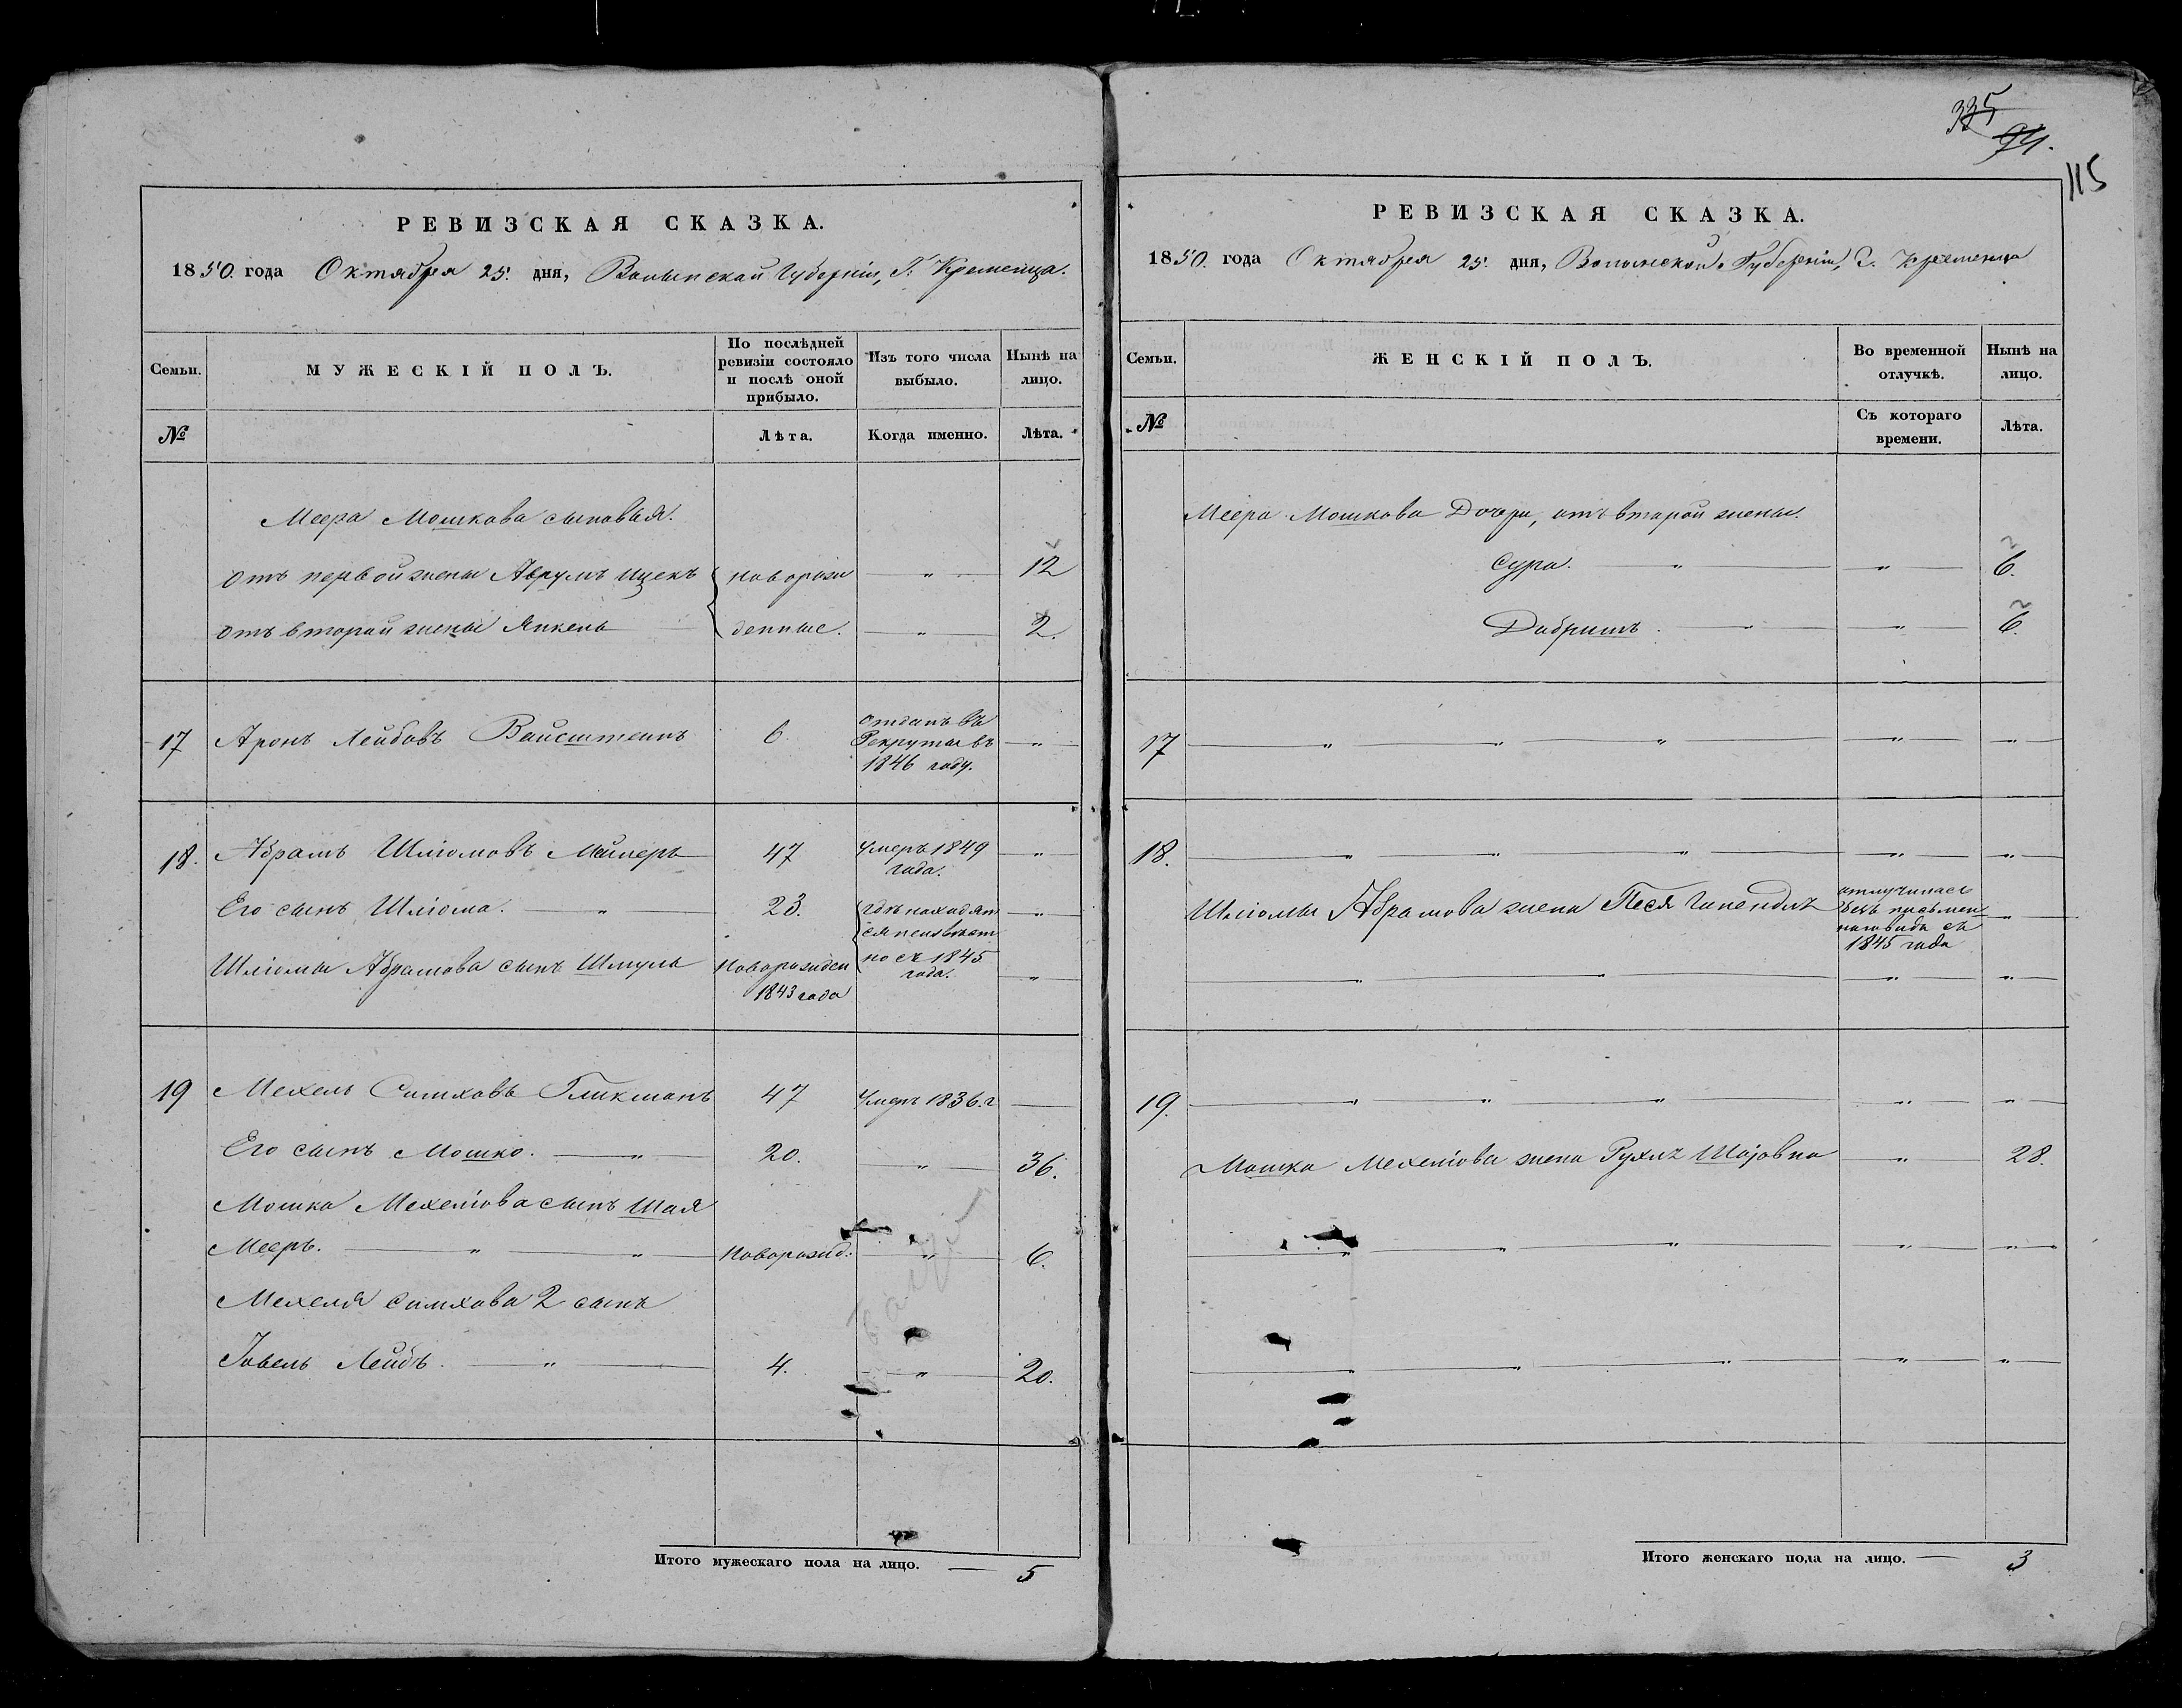 РЕВИЗСКАЯ СКАЗКА.
1850. года Октября 25. дня, Волынской Губерніи, Г. Кременца.
Семьи.
МУЖЕСКІЙ ПОЛЪ.
По послѣдней ревизіи состояло и послѣ оной прибыло.
Изъ того числа выбыло.
Нынѣ на лицо.
№
Лѣта.
Когда именно.
Лѣта.
Меера Мошкова сыновья.
отъ первой жены Аврумъ Ицекъ новорож „ 12
отъ второй жены Янкель денные. „ 2.
17 Аронъ Лейбовъ Вайсштейнъ 6 отданъ въ Рекруты въ 1846 году. „
18. Абрамъ Шліомовъ Мейлеръ 47 Умеръ 1849 года. „
Его сынъ Шліома. „ 23. гдѣ находят „
ся неизвѣст
Шліомы Абрамова сынъ Шмуль Новорожден но съ 1845 года. „
1843 года
19 Мехель Симховъ Гликманъ 47 Умеръ 1836. г
Его сынъ Мошко. „ 20. „ 36.
Мошка Мехеліова сынъ Шая
Мееръ. „ „ Новорожд: „ 6.
Мехеля Симхова 2 сынъ
Іовель Лейбъ. „ 4. „ 20.
Итого мужескаго пола на лицо. 5
335
94.
115
РЕВИЗСКАЯ СКАЗКА.
1850. года Октября 25. дня, Волынской Губерніи, Г. Кременца
Семьи.
ЖЕНСКІЙ ПОЛЪ.
Во временной отлучкѣ.
Нынѣ на лицо.
№
Съ котораго времени.
Лѣта.
Меера Мошкова Дочери, отъ второй жены.
Сура. „ „ 6.
Добришъ. „ „ 6.
17 „ „ „ „ „
18. „ „ „ „ „
Шліомы Абрамова жена Песя Гинендль отлучилась безъ письмен наго вида съ 1845 года „
„ „ „ „
19. „ „ „ „ „
Мошка Мехеліова жена Рухль Шаіовна „ 28.
„ „ „ „ „
„ „ „ „ „
Итого женскаго пола на лицо. 3